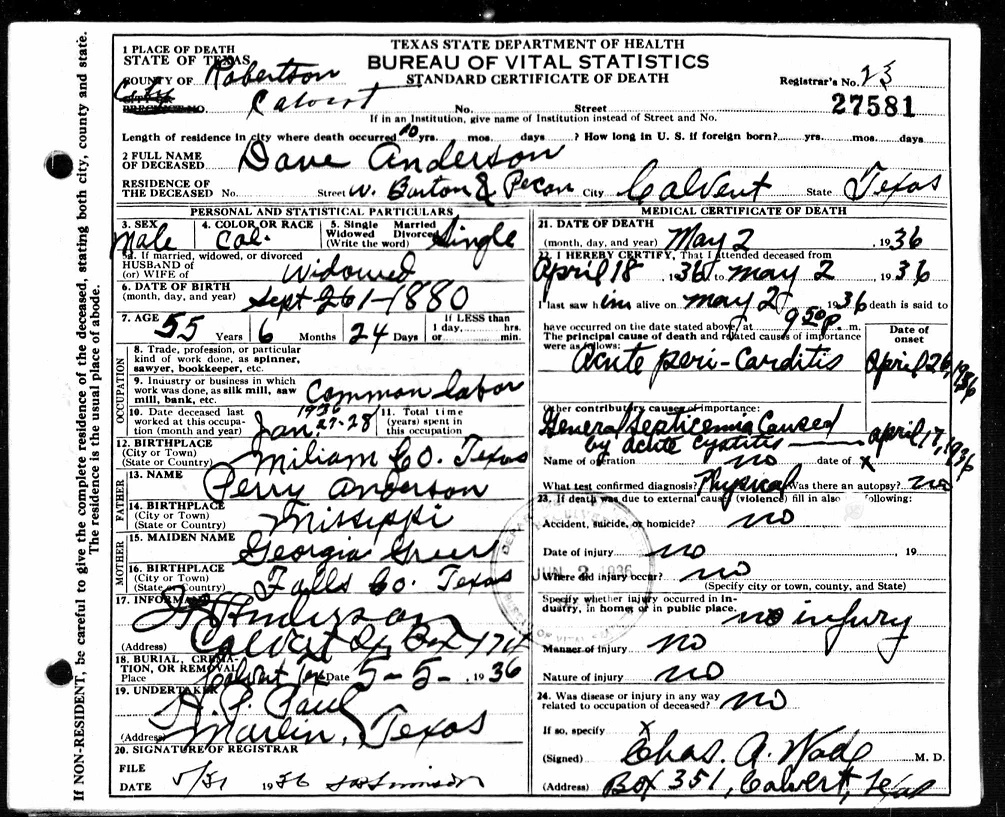 TEXAS STATE DEPARTMENT OF HEALTH
BUREAU OF VITAL STATISTICS
STANDARD CERTIFICATE OF DEATH
1 PLACE OF DEATH
STATE OF TEXAS
COUNTY OF Robertson
City
PRECINCT NO. Calvert No. Street
Registrar's No. 23
27581
If in an Institution, give name of Institution instead of Street and No.
Length of residence in city where death occurred 10 yrs. mos. days ? How long in U. S. if foreign born? yrs. mos. days
2 FULL NAME OF DECEASED Dave Anderson
RESIDENCE OF THE DECEASED No. Street W. Burton & Pecan City Calvert State Texas
PERSONAL AND STATISTICAL PARTICULARS
3. SEX Male
4. COLOR OR RACE Col.
5. Single Married Widowed Divorced (Write the word) Single
5a. If married, widowed, or divorced
HUSBAND of
(or) WIFE of Widowed
6. DATE OF BIRTH
(month, day, and year) Sept 26 1-1880
7. AGE 55 Years 6 Months 24 Days If LESS than 1 day, hrs. or min.
OCCUPATION
8. Trade, profession, or particular
kind of work done, as spinner,
sawyer, bookkeeper, etc.
9. Industry or business in which
work was done, as silk mill, saw
mill, bank, etc. Common labor
10. Date deceased last
worked at this occupa-
tion (month and year) Jan. 27-28 1936
11. Total time
(years) spent in
this occupation
12. BIRTHPLACE
(City or Town)
(State or Country) Miliam Co. Texas
FATHER
13. NAME Perry Anderson
14. BIRTHPLACE
(City or Town)
(State or Country) Missippi
MOTHER
15. MAIDEN NAME Georgia Greer
16. BIRTHPLACE
(City or Town)
(State or Country) Falls Co. Texas
17. INFORMANT Anderson
(Address) Calvert Tx Box 174
18. BURIAL, CREMA-
TION, OR REMOVAL
Place Calvert Tex Date 5-5-, 1936
19. UNDERTAKER H. P. Paul
(Address) Marlin, Texas
20. SIGNATURE OF REGISTRAR
FILE
DATE 5/31 1936
MEDICAL CERTIFICATE OF DEATH
21. DATE OF DEATH
(month, day, and year) May 2, 1936
22. I HEREBY CERTIFY, That I attended deceased from
April 18 1936 to May 2, 1936
I last saw him alive on May 2, 1936 death is said to
have occurred on the date stated above, at 9 50 P. m.
The principal cause of death and related causes of importance
were as follows:
Date of onset
Acute peri-Carditis April 26, 1936
Other contributory causes of importance:
General Septicemia Caused
by acute cystitis April 17, 1936
Name of operation no date of x
What test confirmed diagnosis? Physical Was there an autopsy? no
23. If death was due to external cause (violence) fill in also following:
Accident, suicide, or homicide? no
Date of injury no 19
Where did injury occur? no
(Specify city or town, county, and State)
Specify whether injury occurred in In-
dustry, in home, or in public place. no injury
Manner of injury no
Nature of injury no
24. Was disease or injury in any way
related to occupation of deceased? no
If so, specify x
(Signed) Chas. A. Wode M. D.
(Address) Box 351, Calvert, Texas
JUN 2 1936
If NON-RESIDENT, be careful to give the complete residence of the deceased, stating both city, county and state.
The residence is the usual place of abode.